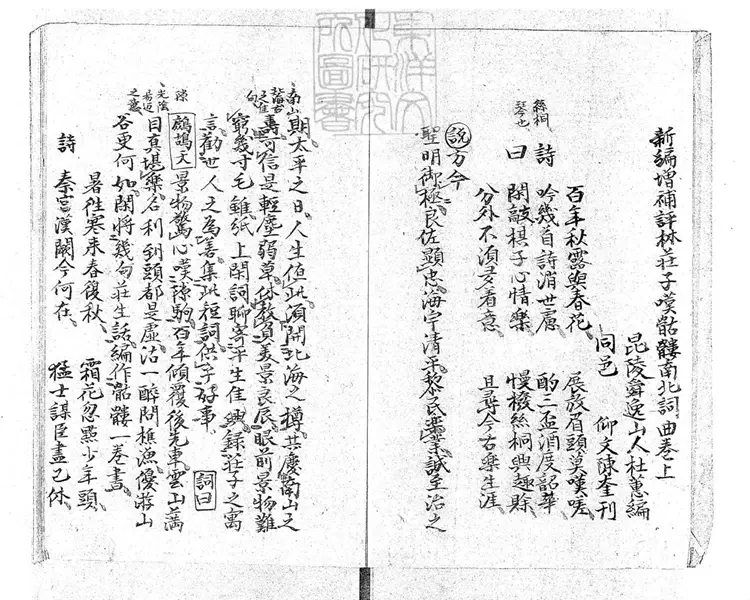 新編增補評林莊子嘆骷髏南北詞曲卷上
昆陵舜逸山人杜蕙編
同邑 仰文陳奎刊
百年秋露與春花 展放眉頭莫嘆嗟
詩 吟幾首詩消世慮 酌三盃酒度韶華
曰 閑敲棋子心情樂 慢撥絲桐興趣賖
分外不須多着意 且尋今古樂生涯
絲桐
琴也
說方今
聖明御極良佐顯忠海宇清平黎民樂業誠至治之
期太平之日人生值此須開北海之樽共慶南山之
壽可信是輕塵弱草休教負美景良辰眼前景物難
窮幾寸毛錐紙上閑詞聊寄平生佳興錄莊子之寓
言勸世人之為善集此徑詞供子好事 詞曰
鷓鴣天 景物驚心嘆隙駒百年傾覆後先車雲山滿
目真堪樂名利到頭都是虛沽一醉問樵漁優游山
谷更何如閑將幾句莊生話編作骷髏一卷書
詩 暑往寒來春復秋 霜花忽點少年頭
秦宮漢闕今何在 猛士謀臣盡已休
南山
北海
隙
光陰
易近
之意
東洋文化研究所圖書